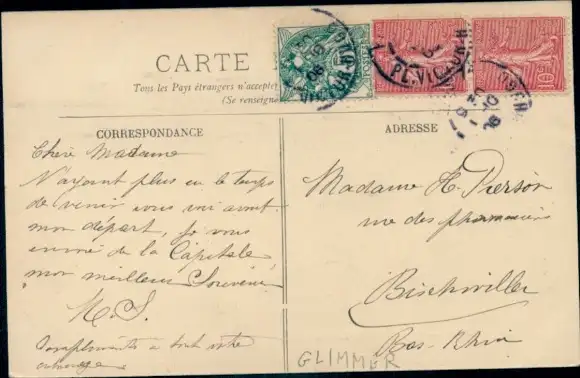 CARTE
Tous les Pays étrangers n'accepte
(Se renseigne
PL. VICTOR. H
CORRESPONDANCE
ADRESSE
Chère Madame
N'ayant plus eu le temps
de venir vous voir avant
mon départ, je vous
envoie de la Capitale,
mon meilleur Souvenir
M. S.
Compliments à tout votre
entourage
Madame H. Pierson
rue des pharmaciens
Bischwiller
Bas-Rhin
GLIMMER